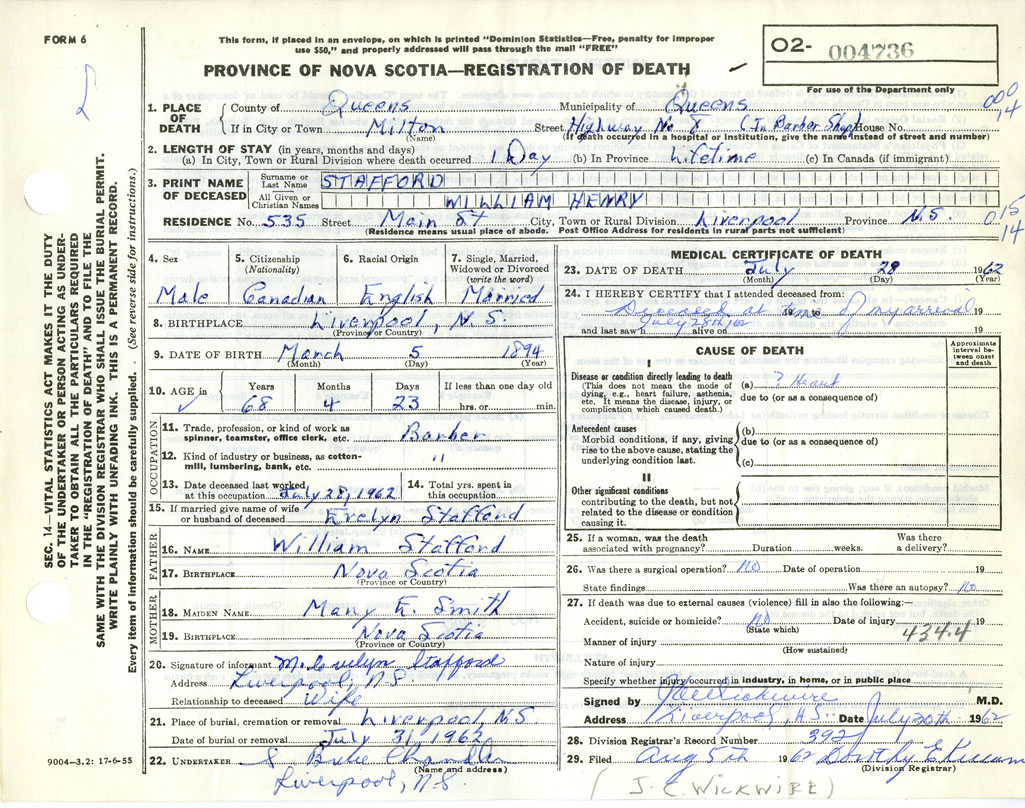 FORM 6
This form, if placed in an envelope, on which is printed "Dominion Statistics—Free, penalty for improper
use $50," and properly addressed will pass through the mail "FREE"
PROVINCE OF NOVA SCOTIA—REGISTRATION OF DEATH
O2- 004736
For use of the Department only
1. PLACE OF DEATH
County of Queens Municipality of Queens
If in City or Town Milton Street Highway No 8 (In Barber Shop) House No.
(Name) (If death occurred in a hospital or institution, give the name instead of street and number)
000
14
2. LENGTH OF STAY (in years, months and days)
(a) In City, Town or Rural Division where death occurred 1 Day (b) In Province Lifetime (c) In Canada (if immigrant)
3. PRINT NAME OF DECEASED
Surname or Last Name STAFFORD
All Given or Christian Names WILLIAM HENRY
RESIDENCE No. 535 Street Main St City, Town or Rural Division Liverpool Province N.S.
(Residence means usual place of abode. Post Office Address for residents in rural parts not sufficient)
015
14
4. Sex Male
5. Citizenship (Nationality) Canadian
6. Racial Origin English
7. Single, Married, Widowed or Divorced (write the word) Married
8. BIRTHPLACE Liverpool, N.S.
(Province or Country)
9. DATE OF BIRTH March 5 1894
(Month) (Day) (Year)
10. AGE in Years Months Days If less than one day old
68 4 23 hrs. or min.
OCCUPATION
11. Trade, profession, or kind of work as spinner, teamster, office clerk, etc. Barber
12. Kind of industry or business, as cotton-mill, lumbering, bank, etc. "
13. Date deceased last worked at this occupation July 28, 1962
14. Total yrs. spent in this occupation
15. If married give name of wife or husband of deceased Evelyn Stafford
FATHER
16. NAME William Stafford
17. BIRTHPLACE Nova Scotia
(Province or Country)
MOTHER
18. MAIDEN NAME Mary E. Smith
19. BIRTHPLACE Nova Scotia
(Province or Country)
20. Signature of informant M. Evelyn Stafford
Address Liverpool, N.S.
Relationship to deceased Wife
21. Place of burial, cremation or removal Liverpool, N.S
Date of burial or removal July 31, 1962
22. UNDERTAKER Chandler
(Name and address)
Liverpool, N.S.
MEDICAL CERTIFICATE OF DEATH
23. DATE OF DEATH July 28 1962
(Month) (Day) (Year)
24. I HEREBY CERTIFY that I attended deceased from:
Deceased at time of my arrival 19
July 28th/62
and last saw h alive on 19
CAUSE OF DEATH
Approximate interval between onset and death
I
Disease or condition directly leading to death
(This does not mean the mode of dying, e.g., heart failure, asthenia, etc. It means the disease, injury, or complication which caused death.)
(a) ? Heart
due to (or as a consequence of)
Antecedent causes
Morbid conditions, if any, giving rise to the above cause, stating the underlying condition last.
(b)
due to (or as a consequence of)
(c)
II
Other significant conditions
contributing to the death, but not related to the disease or condition causing it.
25. If a woman, was the death associated with pregnancy? Duration weeks. Was there a delivery?
26. Was there a surgical operation? No Date of operation 19
State findings Was there an autopsy? No
27. If death was due to external causes (violence) fill in also the following:—
Accident, suicide or homicide? No Date of injury 19
(State which)
434.4
Manner of injury
(How sustained)
Nature of injury
Specify whether injury occurred in industry, in home, or in public place
Signed by J C Wickwire M.D.
Address Liverpool, N.S. Date July 30th 1962
28. Division Registrar's Record Number 392
29. Filed Aug 5th 1962 Dorothy E
(Division Registrar)
( J. C. WICKWIRE )
SEC. 14—VITAL STATISTICS ACT MAKES IT THE DUTY
OF THE UNDERTAKER OR PERSON ACTING AS UNDER-
TAKER TO OBTAIN ALL THE PARTICULARS REQUIRED
IN THE "REGISTRATION OF DEATH" AND TO FILE THE
SAME WITH THE DIVISION REGISTRAR WHO SHALL ISSUE THE BURIAL PERMIT.
WRITE PLAINLY WITH UNFADING INK. THIS IS A PERMANENT RECORD.
Every item of Information should be carefully supplied. . (See reverse side for instructions.)
9004—3.2: 17-6-55